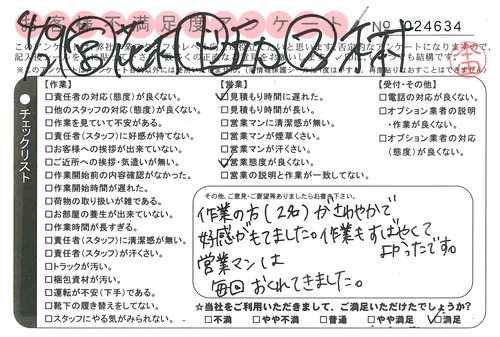 お客様不満足度アンケート
No 024634
チェックリスト
【作業】
□責任者の対応(態度)が良くない。
□他のスタッフの対応(態度)が良くない。
□作業を見ていて不安がある。
□責任者(スタッフ)に好感が持てない。
□お客様への挨拶が出来ていない。
□ご近所への挨拶・気遣いが無い。
□作業開始前の内容確認がなかった。
□作業開始時間が遅れた。
□荷物の取り扱いが雑である。
□お部屋の養生が出来ていない。
□作業時間が長すぎる。
□責任者(スタッフ)に清潔感が無い。
□責任者(スタッフ)が汗くさい。
□トラックが汚い。
□梱包資材が汚い。
□運転が不安(下手)である。
□靴下の履き替えをしてない。
□スタッフにやる気がみられない。
【営業】
☑見積もり時間に遅れた。
□見積もり時間が長い。
□営業マンに清潔感が無い。
□営業マンが煙草くさい。
□営業マンが汗くさい。
☑営業態度が良くない。
□営業の説明と作業が一致してない。
【受付・その他】
□電話の対応が良くない。
□オプション業者の説明
・作業が良くない。
□オプション業者の対応
(態度)が良くない。
その他、ご意見・ご要望等ありましたらお書き下さい。
作業の方(2名)がさわやかで
好感がもてました。作業もすばやくて
よかったです。
営業マンは
毎回おくれてきました。
★当社をご利用いただきまして、ご満足いただけたでしょうか?
□不満 □やや不満 □普通 □やや満足 ☑満足